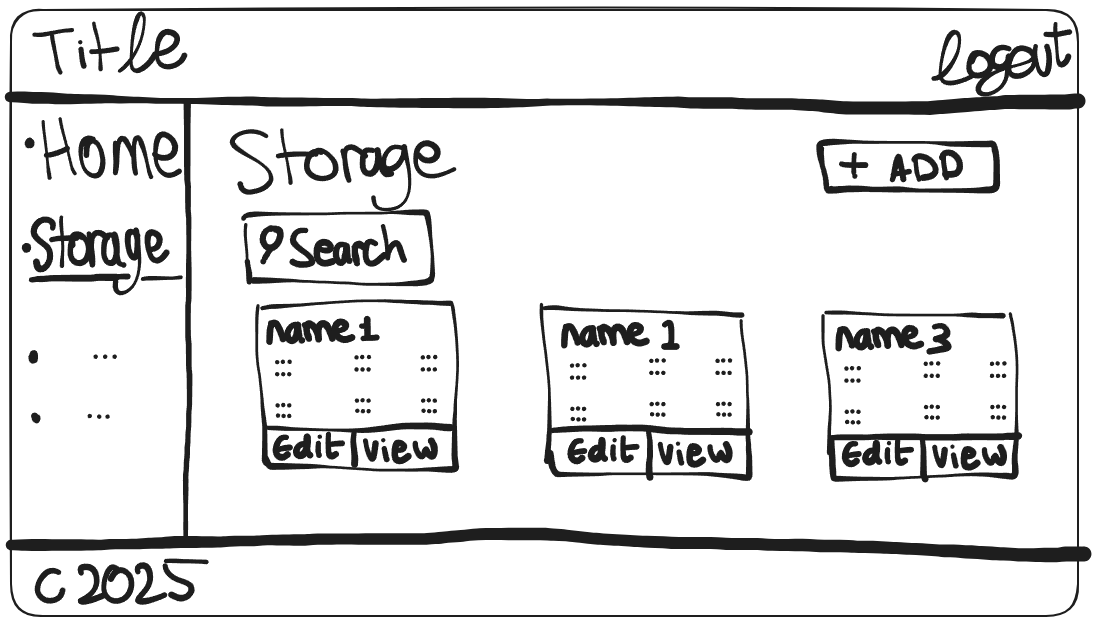 Title
logout
• Home
• Storage
• ...
• ...
Storage
+ ADD
Search
name 1
Edit
View
name 1
Edit
View
name 3
Edit
View
C 2025